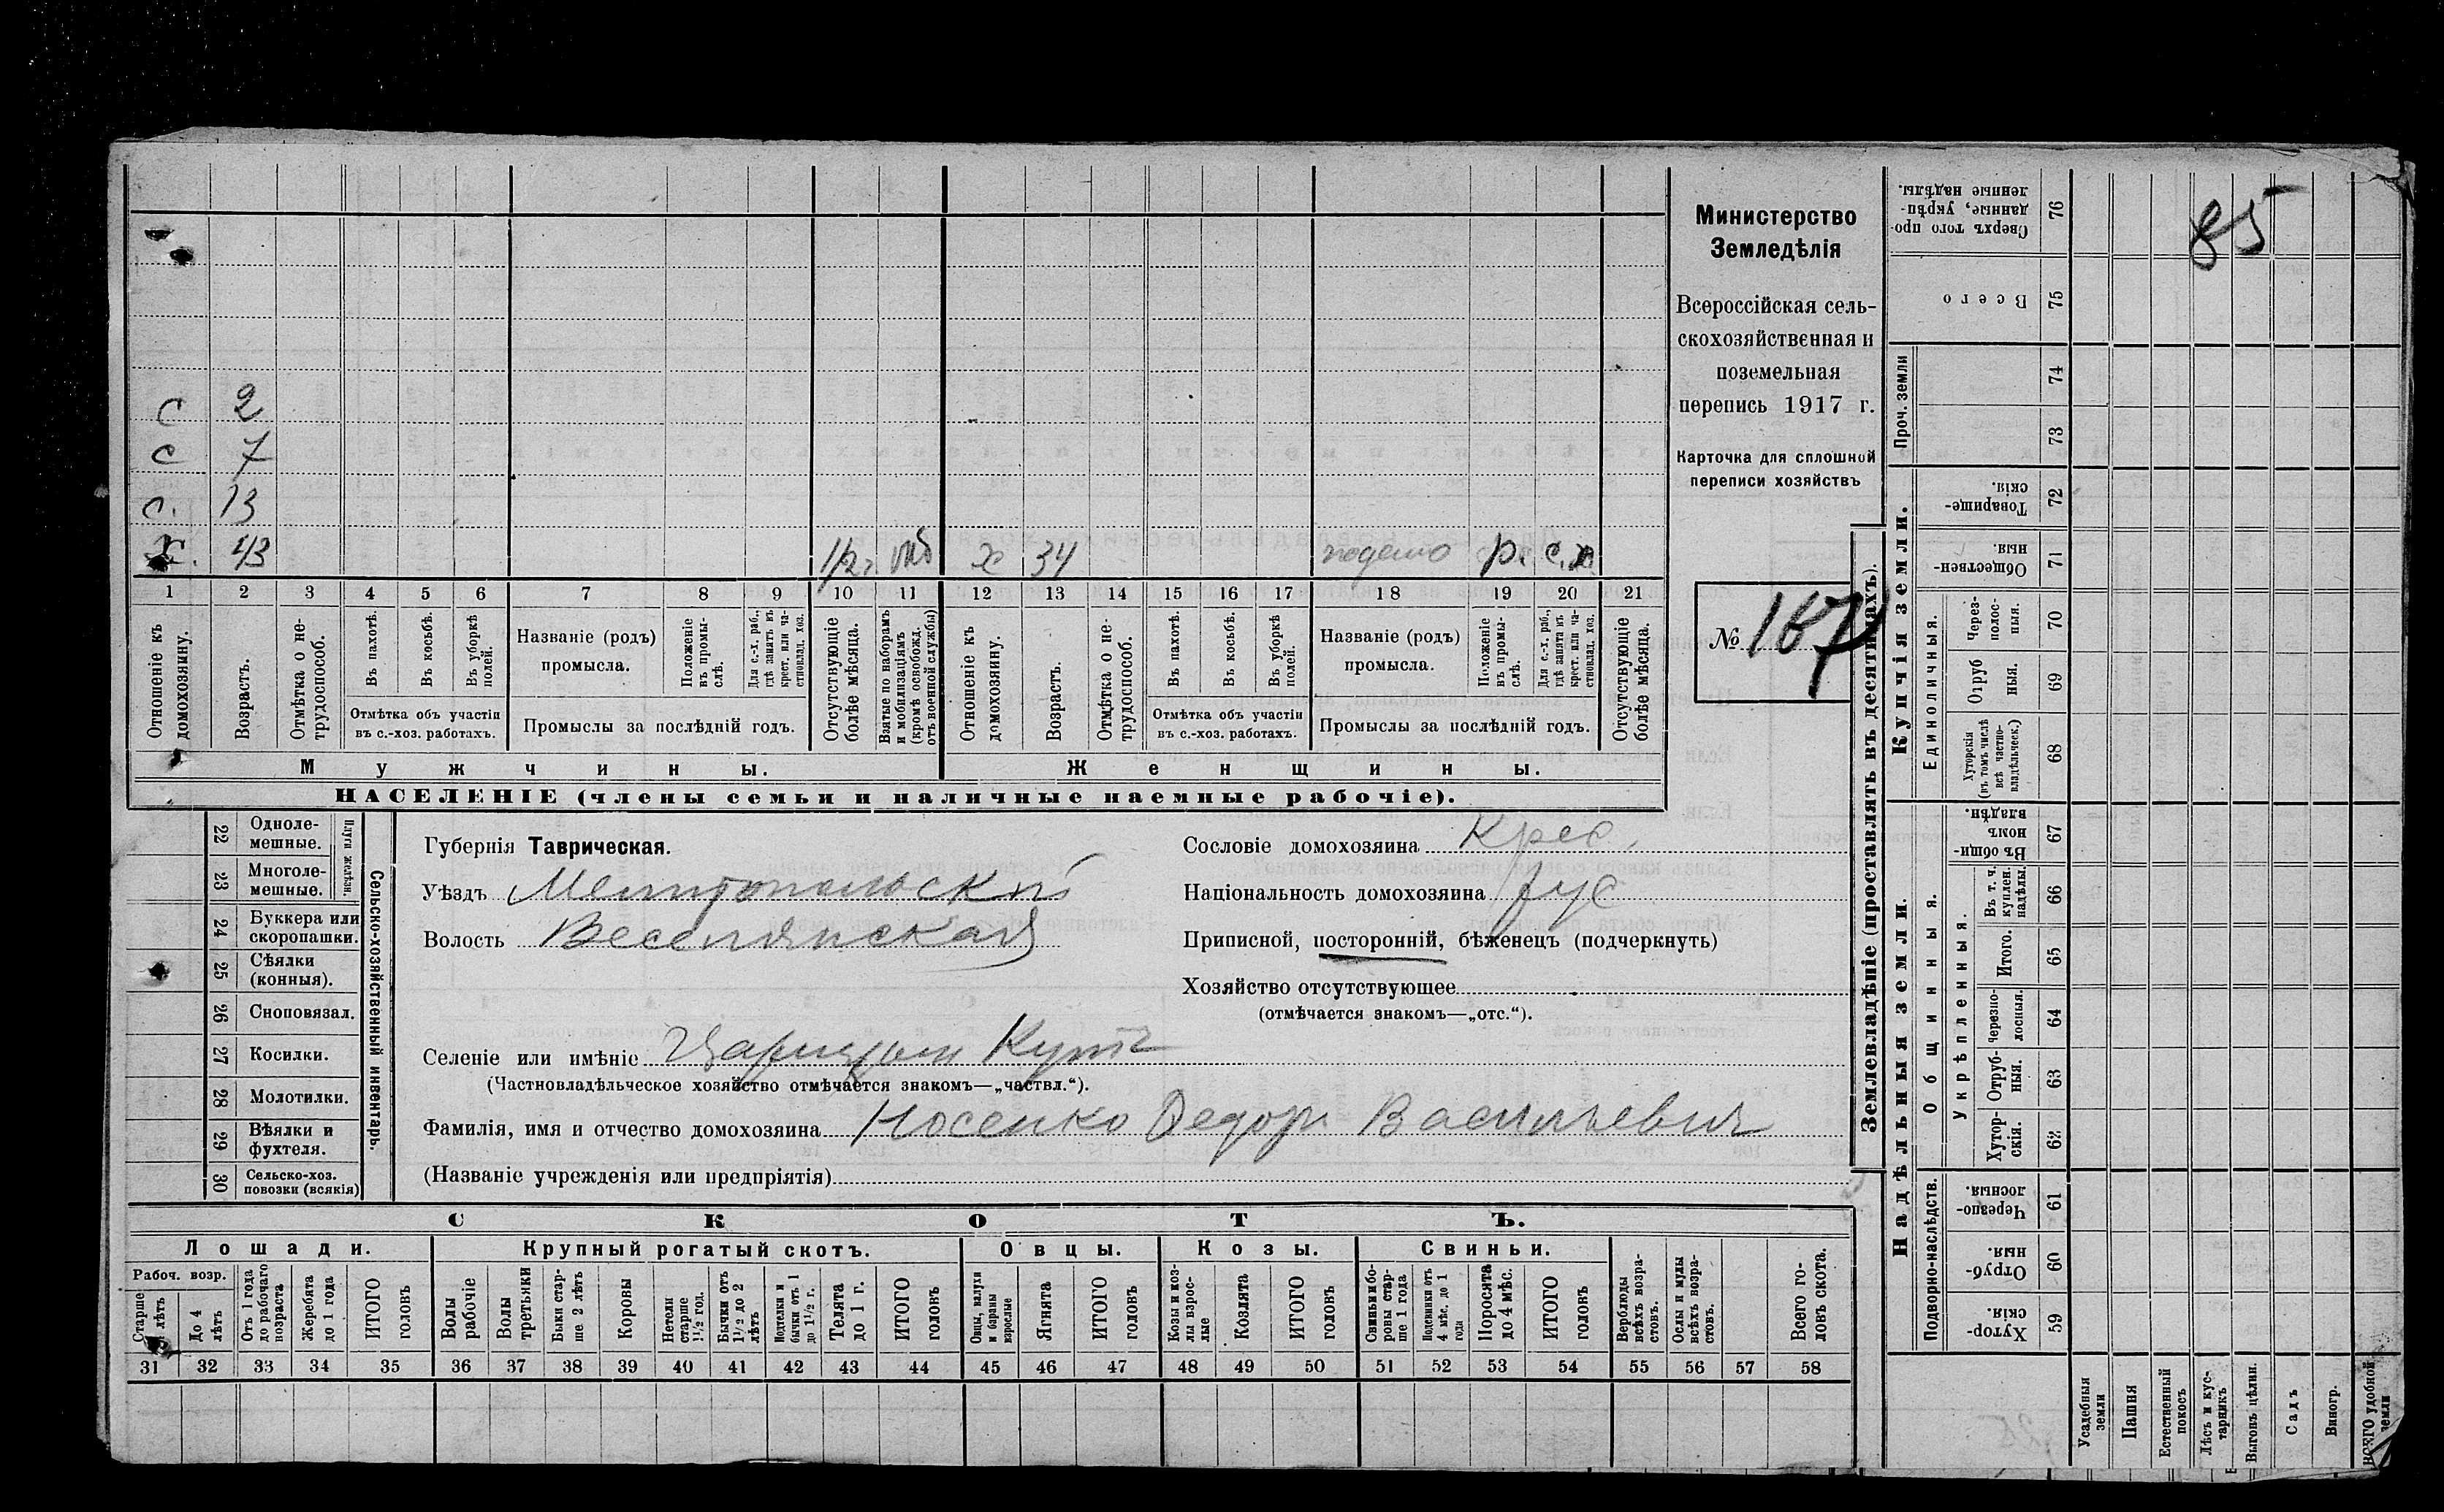 85
с 2
с 7
с. 13
х. 43 1/2 г. моб х 34 подено р. с.х.
1 2 3 4 5 6 7 8 9 10 11 12 13 14 15 16 17 18 19 20 21
Отношеніе къ домохозяину.
Возрастъ.
Отмѣтка о не-трудоспособ.
Въ пахотѣ.
Въ косьбѣ.
Въ уборкѣ полей.
Отмѣтка объ участіи
въ с.-хоз. работахъ.
Названіе (родъ)
промысла.
Положеніе въ промы-слѣ.
Для с.-х. раб., гдѣ занятъ въ крест. или ча-стновлад. хоз.
Промыслы за послѣдній годъ.
Отсутствующіе болѣе мѣсяца.
Взятые по наборамъ и мобилизаціямъ (кромѣ освобожд. отъ военной службы)
Отношеніе къ домохозяину.
Возрастъ.
Отмѣтка о не-трудоспособ.
Въ пахотѣ.
Въ косьбѣ.
Въ уборкѣ полей.
Отмѣтка объ участіи
въ с.-хоз. работахъ.
Названіе (родъ)
промысла.
Положеніе въ промы-слѣ.
Для с.-х. раб., гдѣ занята въ крест. или ча-стновлад. хоз.
Промыслы за послѣдній годъ.
Отсутствующіе болѣе мѣсяца.
Мужчины. Женщины.
НАСЕЛЕНІЕ (члены семьи и наличные наемные рабочіе).
Министерство
Земледѣлія
Всероссійская сель-
скохозяйственная и
поземельная
перепись 1917 г.
Карточка для сплошной
переписи хозяйствъ
№ 167
22 Одноле-мешные.
23 Многоле-мешные.
Плуги желѣзн.
24 Буккера или скоропашки.
25 Сѣялки (конныя).
26 Сноповязал.
27 Косилки.
28 Молотилки.
29 Вѣялки и фухтеля.
30 Сельско-хоз. повозки (всякія)
Сельско-хозяйственный инвентарь.
Губернія Таврическая.
Уѣздъ Мелитопольскій
Волость Веселянская
Сословіе домохозяина Крес.
Національность домохозяина рус
Приписной, посторонній, бѣженецъ (подчеркнуть)
Хозяйство отсутствующее
(отмѣчается знакомъ—„отс.“).
Селеніе или имѣніе Царицын Кутъ
(Частновладѣльческое хозяйство отмѣчается знакомъ—„частвл.“).
Фамилія, имя и отчество домохозяина Носенко Федоръ Васильевич
(Названіе учрежденія или предпріятія)
СКОТЪ.
Лошади. Крупный рогатый скотъ. Овцы. Козы. Свиньи.
Рабоч. возр.
Старше лѣтъ
До 4 лѣтъ
Отъ 1 года до рабочаго возраста
Жеребята до 1 года
ИТОГО головъ
Волы рабочіе
Волы третьяки
Быки стар-ше 2 лѣтъ
Коровы
Нетели старше 1½ год.
Бычки отъ 1½ до 2 лѣтъ
Подтелки и бычки отъ 1 до 1½ г.
Телята до 1 г.
ИТОГО головъ
Овцы, валухи и бараны взрослые
Ягнята
ИТОГО головъ
Козы и коз-лы взрос-лые
Козлята
ИТОГО головъ
Свиньи и бо-ровы стар-ше 1 года
Подсвинки отъ 4 мѣс. до 1 года
Поросята до 4 мѣс.
ИТОГО головъ
Верблюды всѣхъ возра-стовъ.
Ослы и мулы всѣхъ возра-стовъ.
Всего го-ловъ скота.
31 32 33 34 35 36 37 38 39 40 41 42 43 44 45 46 47 48 49 50 51 52 53 54 55 56 57 58
Землевладѣніе (проставлять въ десятинахъ).
Купчія земли.
Надѣльныя земли.
Сверхъ того про-данные, укрѣп-ленные надѣлы. 76
Всего 75
Проч. земли
74
73
Товарище-скія. 72
Обществен-ныя. 71
Единоличныя.
Через-полос-ныя. 70
Отруб ныя. 69
Хуторскія (въ томъ числѣ всѣ частно-владѣльческ.) 68
Общинныя.
Въ общи-номъ владѣн. 67
Въ т. ч. куплен. надѣлы. 66
Укрѣпленныя.
Итого. 65
Черезпо-лосныя. 64
Отруб-ныя. 63
Хутор-скія. 62
Подворно-наслѣдств.
Черезпо-лосныя. 61
Отруб-ныя 60
Хутор-скія. 59
Усадебныя земли
Пашня
Естественный покосъ
Лѣсъ и кус-тарникъ
Выгонъ цѣлин.
Садъ
Виногр.
ВСЕГО удобной земли